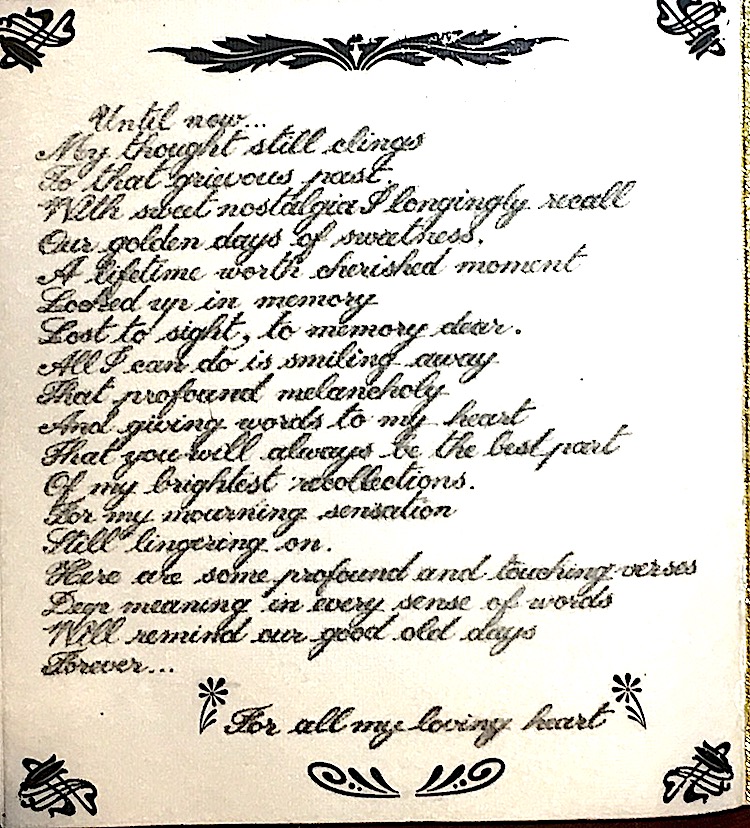 Until now...
My thought still clings
To that grievous past.
With sweet nostalgia I longingly recall
Our golden days of sweetness.
A lifetime worth cherished moment
Locked up in memory
Lost to sight, to memory dear.
All I can do is smiling away
That profound melancholy
And giving words to my heart
That you will always be the best part
Of my brightest recollections.
For my mourning sensation
Still lingering on.
Here are some profound and touching verses
Deep meaning in every sense of words
Will remind our good old days
Forever...
For all my loving heart